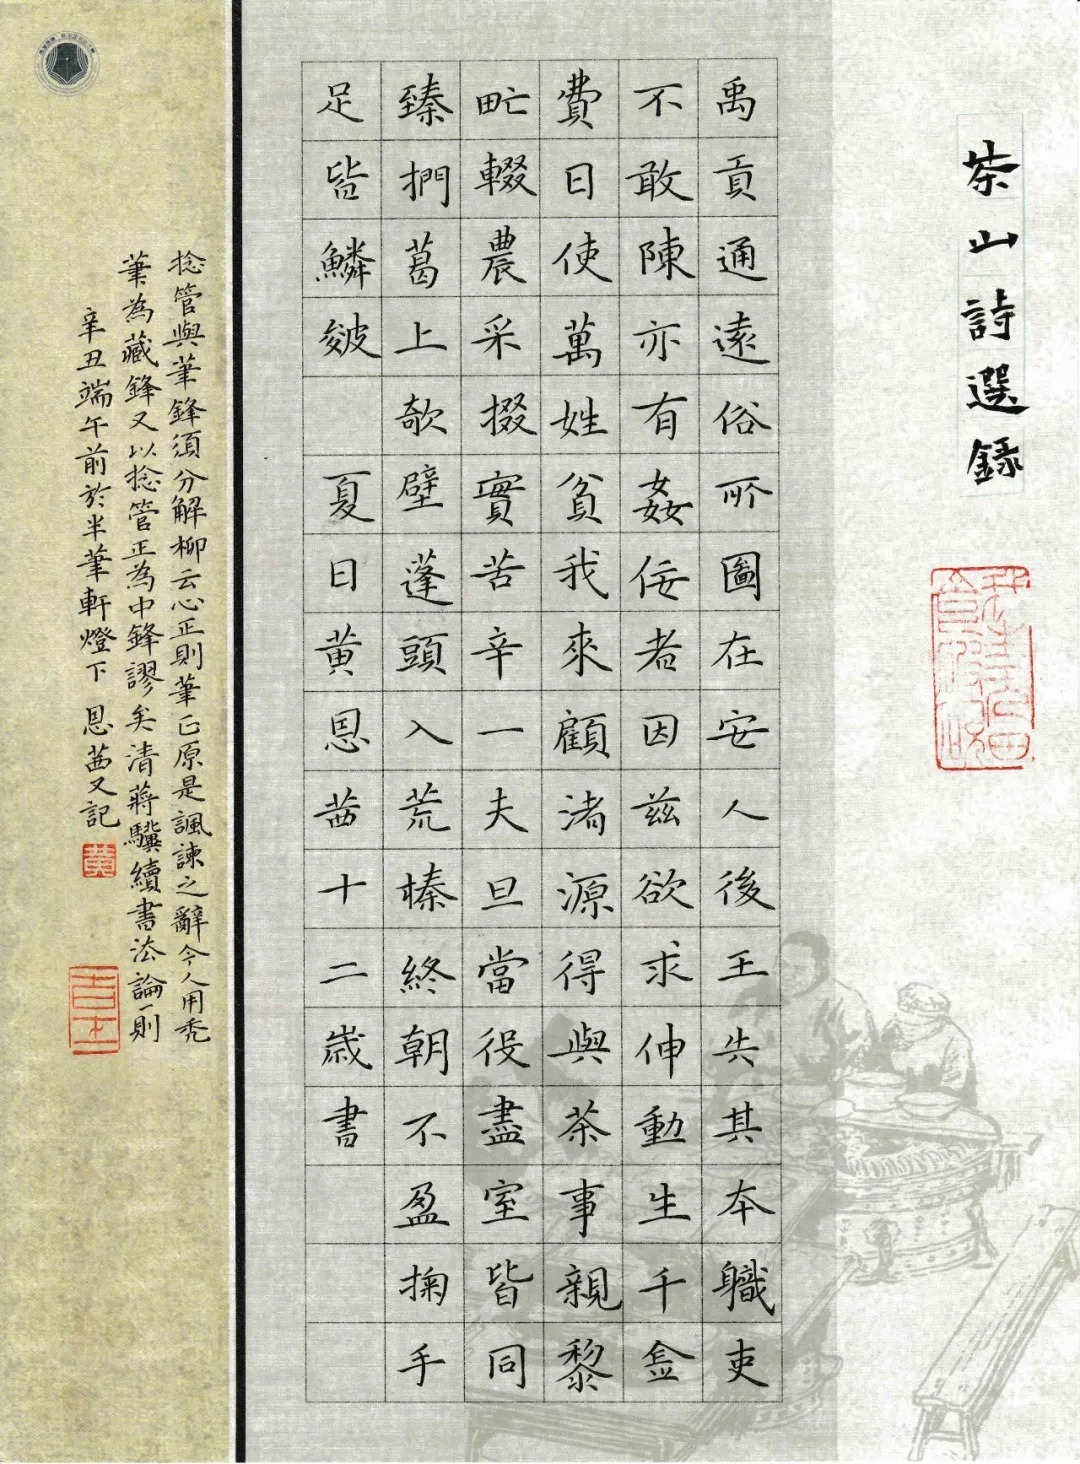 茶山詩選錄
禹貢通遠俗所圖在安人後王失其本職吏
不敢陳亦有姦佞者因茲欲求伸動生千金
費日使萬姓貧我來顧渚源得與茶事親黎
甿輟農采掇實苦辛一夫旦當役盡室皆同
臻捫葛上欹壁蓬頭入荒榛終朝不盈掬手
足皆鱗皴 夏日黃恩茜十二歲書
捻管與筆鋒須分解柳云心正則筆正原是諷諫之辭今人用禿
筆為藏鋒又以捻管正為中鋒謬矣清蔣驥續書法論一則
辛丑端午前於半筆軒燈下 恩茜又記
黃